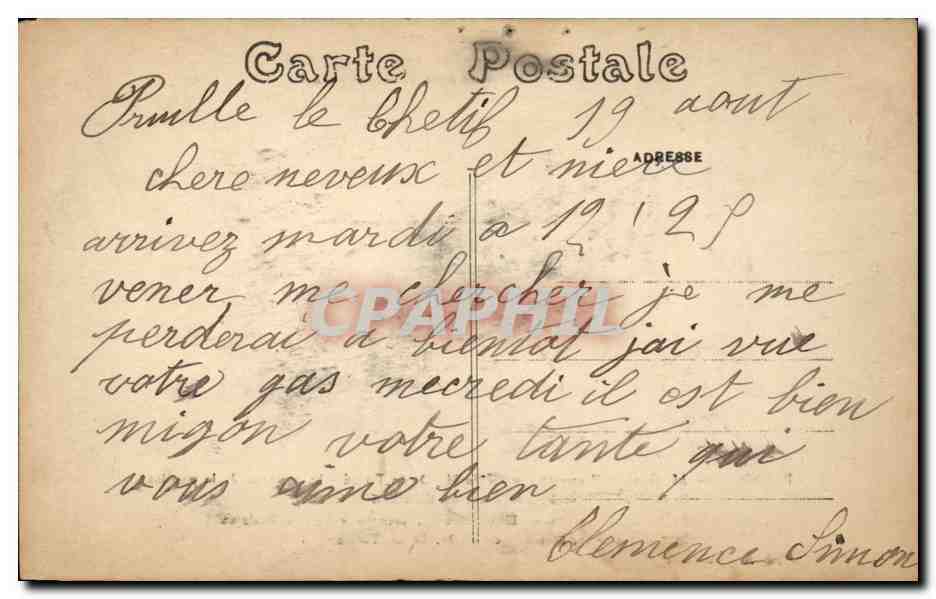 Carte Postale
Pruille le Chetif 19 aout
ADRESSE
chere neveux et niece
arrivez mardi a 12 ' 25
vener me chercher je me
CPAPHIL
perderai a bientot jai vue
votre gas mecredi il est bien
migon votre tante qui
vous aime bien
Clemence Simon